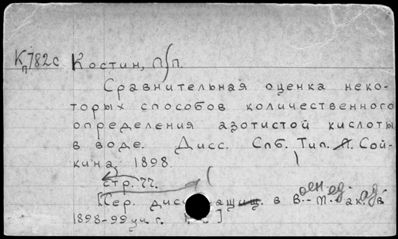 Кп782с Костин, П.П.
Сравнительная оценка неко-
торых способов количественного
определения азотистой кислоты
в воде. Дисс. Спб. Тип. Сой-
кина, 1898.
стр. 77.
Сер. дисс. защищ. в В.-М. ак. в
1898-99 уч. г.